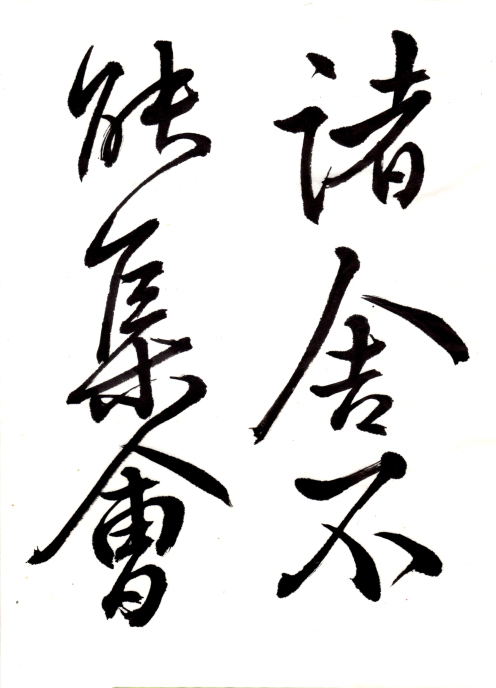 諸舍不
能集會